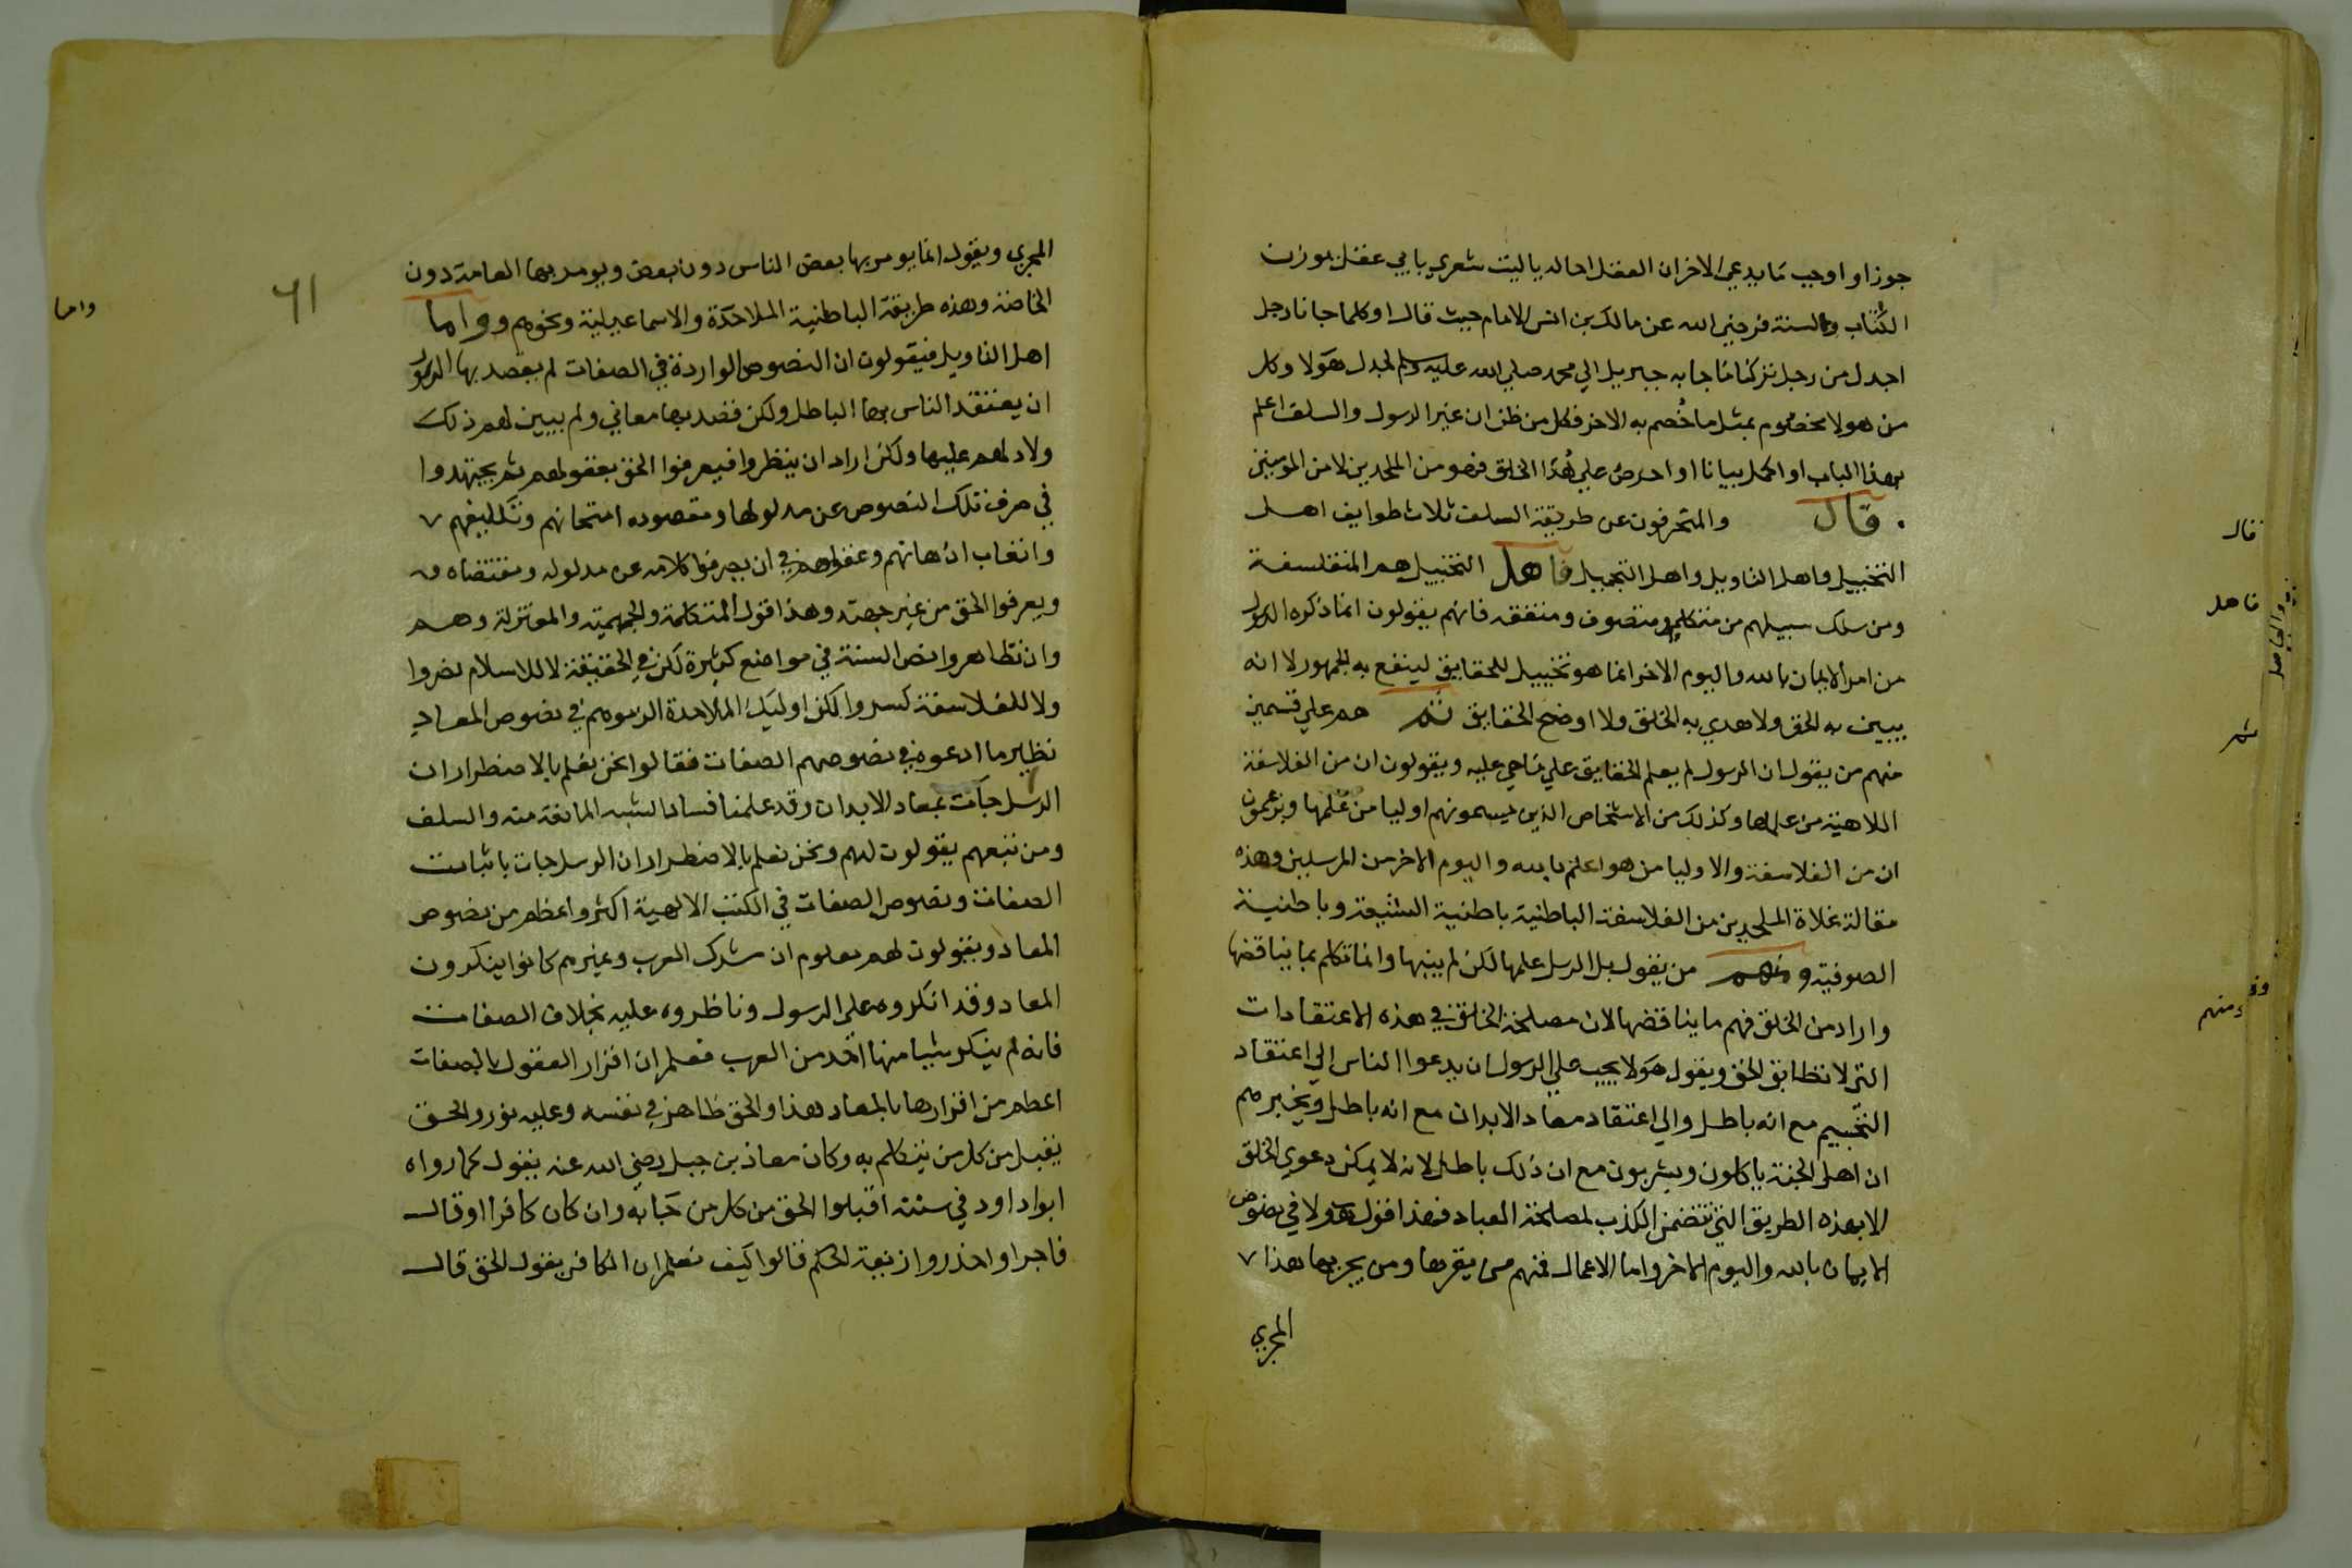 جوز او اوجب ما يدعي الاخر ان العقل احاله ياليت شعري باي عقل يوزن
الكتاب والسنة فرضي الله عن مالك بن انس الامام حيث قال او كلما جانا رجل
اجدل من رجل تركنا ما جا به جبريل الي محمد صلي الله عليه وسلم لجدل هولا وكل
من هولا مخصوم بمثل ما خُصم به الاخر فكل من ظن ان غير الرسول والسلف اعلم
بهذا الباب او اكمل بيانا او احرص علي هُدا الخلق فهو من الملحدين لا من المومنين
قال والمنحرفون عن طريقة السلف ثلاث طوايف اهل
التخييل واهل التاويل واهل التجهيل فاهل التخييل هم المتفلسفة
ومن سلك سبيلهم من متكلم ومتصوف ومتفقه فانهم يقولون انما ذكره الرسول
من امر الايمان بالله واليوم الاخر انما هو تخييل للحقايق لينفع به الجمهور لا انه
يبين به الحق ولا هدي به الخلق ولا اوضح الحقايق ثم هم علي قسمين
منهم من يقول ان الرسول لم يعلم الحقايق علي ما هي عليه ويقولون ان من الفلاسفة
اللاهية من علمها وكذلك من الاشخاص الذين يسمونهم اوليا من علمها ويزعمون
ان من الفلاسفة والاوليا من هو اعلم بالله واليوم الاخر من المرسلين وهذه
مقالة غلاة الملحدين من الفلاسفة الباطنية باطنية الشيعة وباطنية
الصوفية ومنهم من يقول بل الرسل علمها لكن لم يبينها وانما تكلم بما يناقضها
واراد من الخلق فهم ما يناقضها لان مصلحة الخلق في هذه الاعتقادات
التي لا تطابق الحق ويقول هولا يجب علي الرسول ان يدعوا الناس الي اعتقاد
التجسيم مع انه باطل والي اعتقاد معاد الابدان مع انه باطل ويخبرهم
ان اهل الجنة ياكلون ويشربون مع ان ذلك باطل لانه لا يمكن دعوي الخلق
الا بهذه الطريق التي تتضمن الكذب لمصلحة العباد فهذا قول هولا في نصوص
الايمان بالله واليوم الاخر واما الاعمال فمنهم من يقرها ومن يجريها هذا
المجري
قال
فاهل
ثم
ومنهم
المجري ويقول انما يومر بها بعض الناس دون بعض ويومر بها العامة دون
الخاصة وهذه طريقة الباطنية الملاحدة والاسماعيلية ونحوهم واما
اهل التاويل فيقولون ان النصوص الواردة في الصفات لم يقصد بها الرسول
ان يعتقد الناس بها الباطل ولكن قصد بها معاني ولم يبين لهم ذلك
ولا دلهم عليها ولكن اراد ان ينظروا فيعرفوا الحق بعقولهم ثم يجتهدوا
في صرف تلك النصوص عن مدلولها ومقصوده امتحانهم وتكليفهم
واتعاب اذهانهم وعقولهم في ان يصرفوا كلامه عن مدلوله ومقتضاه
ويعرفوا الحق من غير جهته وهذا قول المتكلمة والجهمية والمعتزلة وهم
وان تظاهروا بنصر السنة في مواضع كثيرة لكن في الحقيقة لا للاسلام نصروا
ولا للفلاسفة كسروا لكن اوليك الملاحدة الزموهم في نصوص المعاد
نظير ما ادعوه في نصوصهم الصفات فقالوا نحن نعلم بالاضطرار ان
الرسل جآت بمعاد الابدان وقد علمنا فساد الشبه المانعة منه والسلف
ومن تبعهم يقولون لهم ونحن نعلم بالاضطرار ان الرسل جات باثبات
الصفات ونصوص الصفات في الكتب الالهية اكثر واعظم من نصوص
المعاد ويقولون لهم معلوم ان مشرك العرب وغيرهم كانوا ينكرون
المعاد وقد انكروه علي الرسول وناظروه عليه بخلاف الصفات
فانه لم ينكر شيا منها احد من العرب فعلم ان اقرار العقول بالصفات
اعظم من اقرارها بالمعاد هذا والحق ظاهر في نفسه وعليه نور والحق
يقبل من كل من يتكلم به وكان معاذ بن جبل رضي الله عنه يقول كما رواه
ابوا داود في سننه اقبلوا الحق من كل من جا به وان كان كافرا او قال
فاجرا واحذروا زيغة الحكيم قالوا كيف نعلم ان الكافر يقول الحق قال
٦١
واما